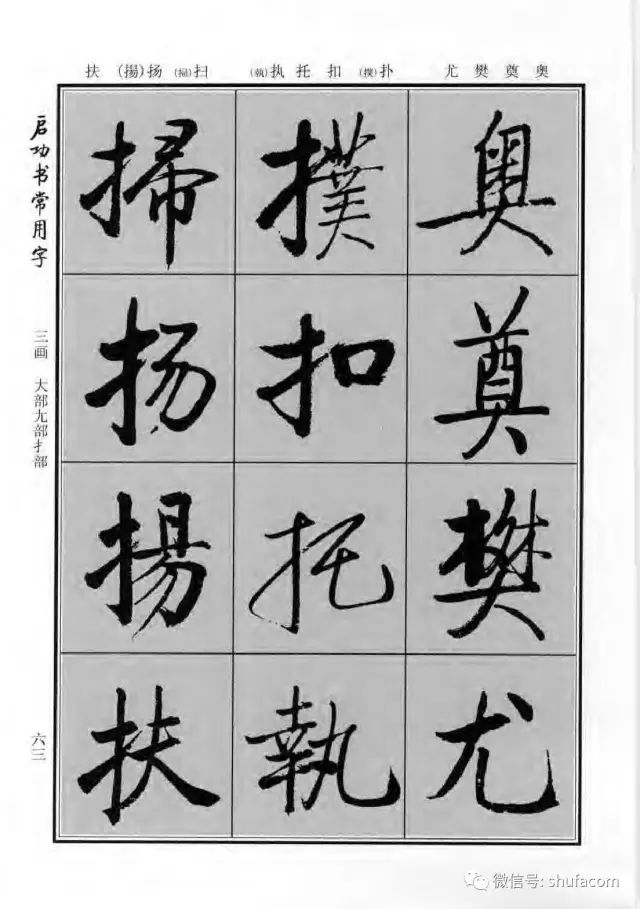 扶 (揚)扬 (掃)扫 (執)执 托 扣 (撲)扑 尤 樊 奠 奥
启功书常用字
三画 大部尢部扌部
六三
奥
奠
樊
尤
撲
扣
托
執
掃
扬
揚
扶
微信号: shufacom